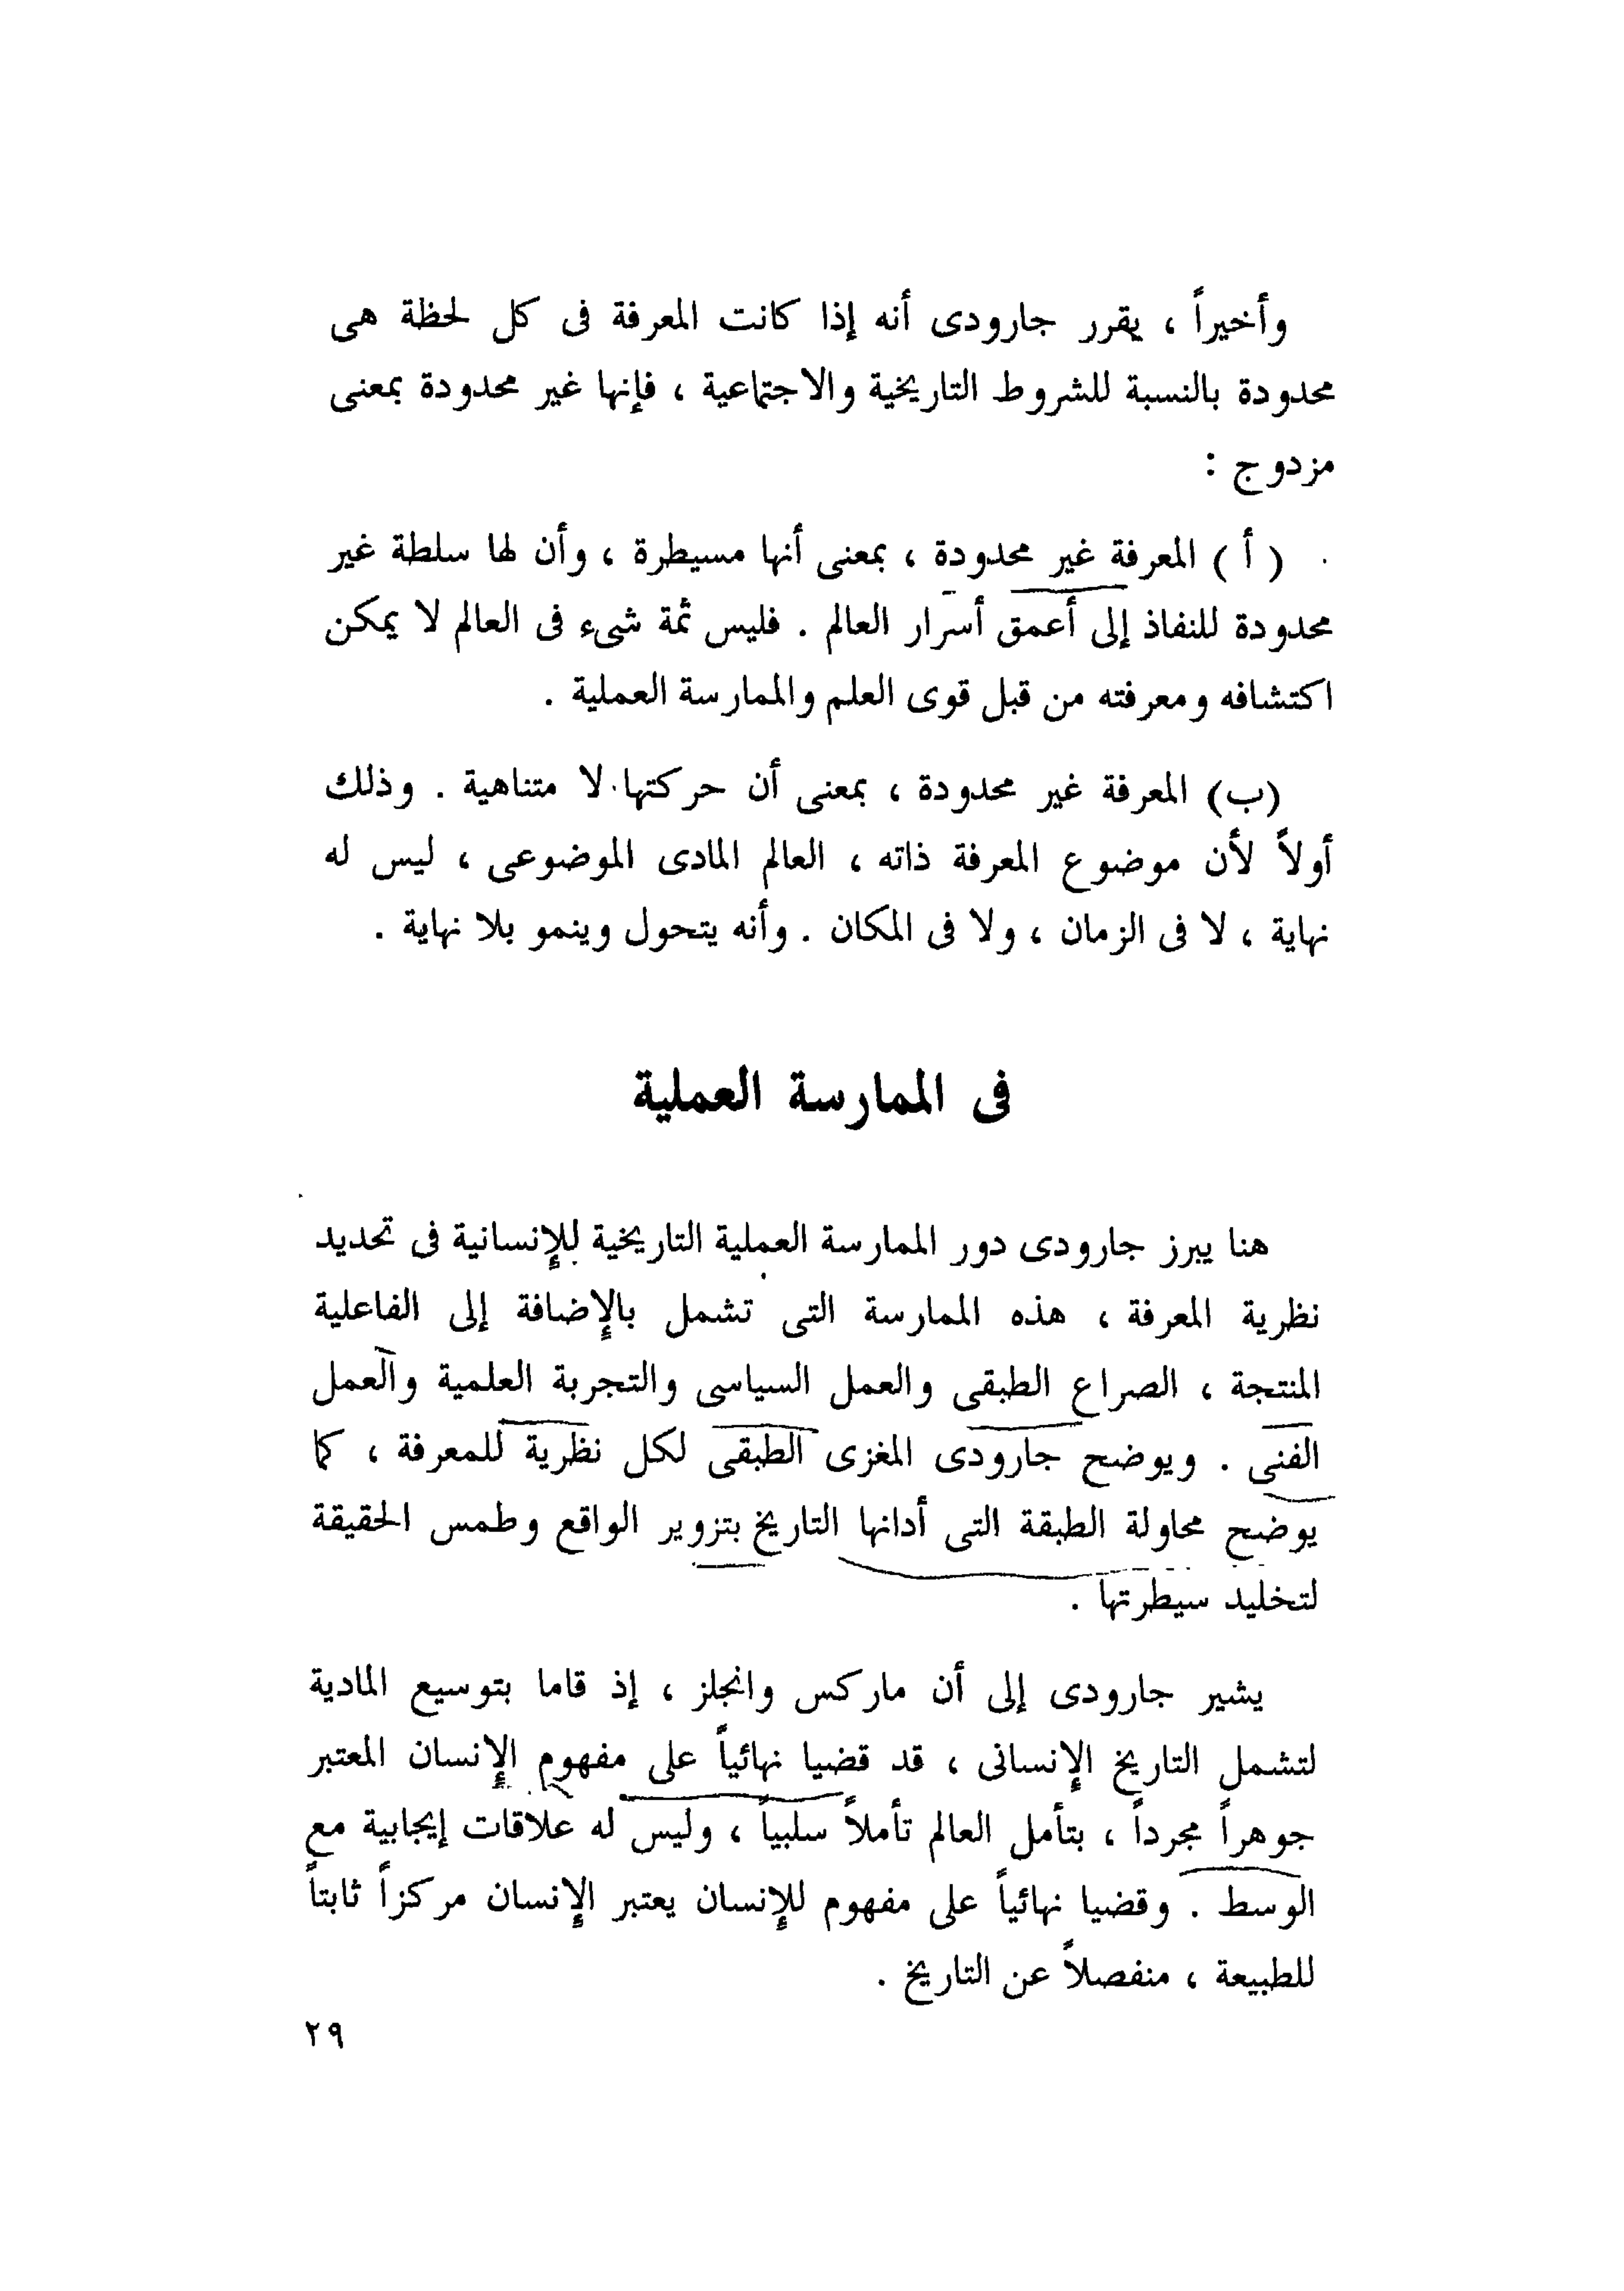 وأخيراً ، يقرر جارودى أنه إذا كانت المعرفة فى كل لحظة هى
محدودة بالنسبة للشروط التاريخية والاجتماعية ، فإنها غير محدودة بمعنى
مزدوج :
( أ ) المعرفة غير محدودة ، بمعنى أنها مسيطرة ، وأن لها سلطة غير
محدودة للنفاذ إلى أعمق أسرار العالم . فليس ثمة شىء فى العالم لا يمكن
اكتشافه ومعرفته من قبل قوى العلم والممارسة العملية .
(ب) المعرفة غير محدودة ، بمعنى أن حركتها لا متناهية . وذلك
أولاً لأن موضوع المعرفة ذاته ، العالم المادى الموضوعى ، ليس له
نهاية ، لا فى الزمان ، ولا فى المكان . وأنه يتحول وينمو بلا نهاية .
فى الممارسة العملية
هنا يبرز جارودى دور الممارسة العملية التاريخية للإنسانية فى تحديد
نظرية المعرفة ، هذه الممارسة التى تشمل بالإضافة إلى الفاعلية
المنتجة ، الصراع الطبقى والعمل السياسى والتجربة العلمية والعمل
الفنى . ويوضح جارودى المغزى الطبقى لكل نظرية للمعرفة ، كما
يوضح محاولة الطبقة التى أدانها التاريخ بتزوير الواقع وطمس الحقيقة
لتخليد سيطرتها .
يشير جارودى إلى أن ماركس وانجلز ، إذ قاما بتوسيع المادية
لتشمل التاريخ الإنسانى ، قد قضيا نهائياً على مفهوم الإنسان المعتبر
جوهراً مجرداً ، بتأمل العالم تأملاً سلبياً ، وليس له علاقات إيجابية مع
الوسط . وقضيا نهائياً على مفهوم للإنسان يعتبر الإنسان مركزاً ثابتاً
للطبيعة ، منفصلاً عن التاريخ .
٢٩